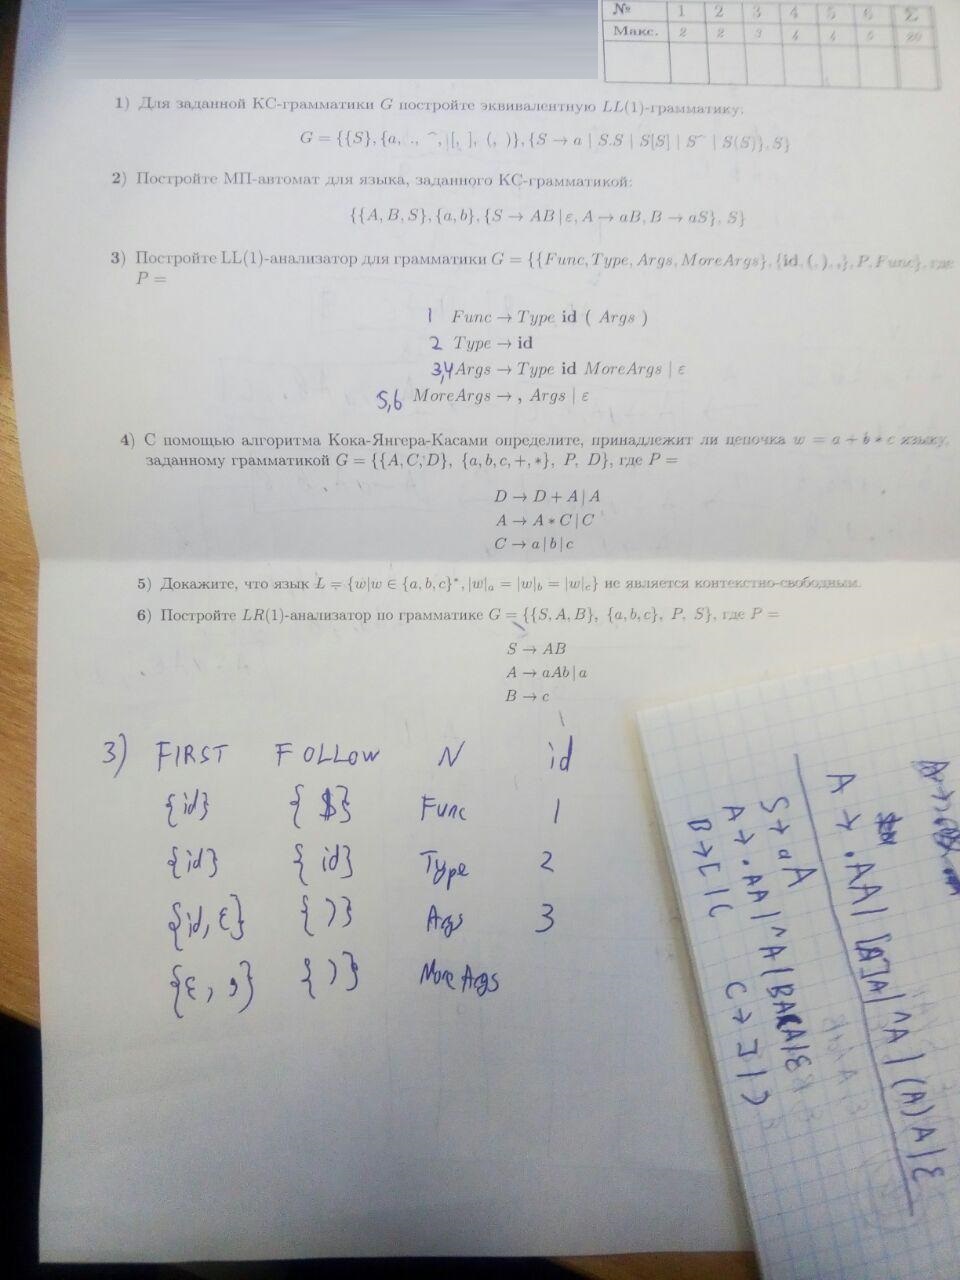 № 1 2 3 4 5 6 Σ
Макс. 2 2 3 4 4 5 20
1) Для заданной КС-грамматики G постройте эквивалентную LL(1)-грамматику:
G = {{S}, {a, ., ^, [, ], (, )}, {S → a | S.S | S[S] | S^ | S(S)}, S}
2) Постройте МП-автомат для языка, заданного КС-грамматикой:
{{A, B, S}, {a, b}, {S → AB | ε, A → aB, B → aS}, S}
3) Постройте LL(1)-анализатор для грамматики G = {{Func, Type, Args, MoreArgs}, {id, (, ), ,}, P, Func}, где
P =
1 Func → Type id ( Args )
2 Type → id
3,4 Args → Type id MoreArgs | ε
5,6 MoreArgs → , Args | ε
4) С помощью алгоритма Кока-Янгера-Касами определите, принадлежит ли цепочка w = a + b * c языку,
заданному грамматикой G = {{A, C, D}, {a, b, c, +, *}, P, D}, где P =
D → D + A | A
A → A * C | C
C → a | b | c
5) Докажите, что язык L = {w|w ∈ {a, b, c}*, |w|a = |w|b = |w|c} не является контекстно-свободным.
6) Постройте LR(1)-анализатор по грамматике G = {{S, A, B}, {a, b, c}, P, S}, где P =
S → AB
A → aAb | a
B → c
3) FIRST FOLLOW N id
{id} {$} Func 1
{id} {id} Type 2
{id, ε} {)} Args 3
{ε, ,} {)} More Args
A → .AA | [A]A | ^A | (A)A | ε
S → aA
A → .AA | ^A | BACA | ε
B → [ | (
C → ] | )